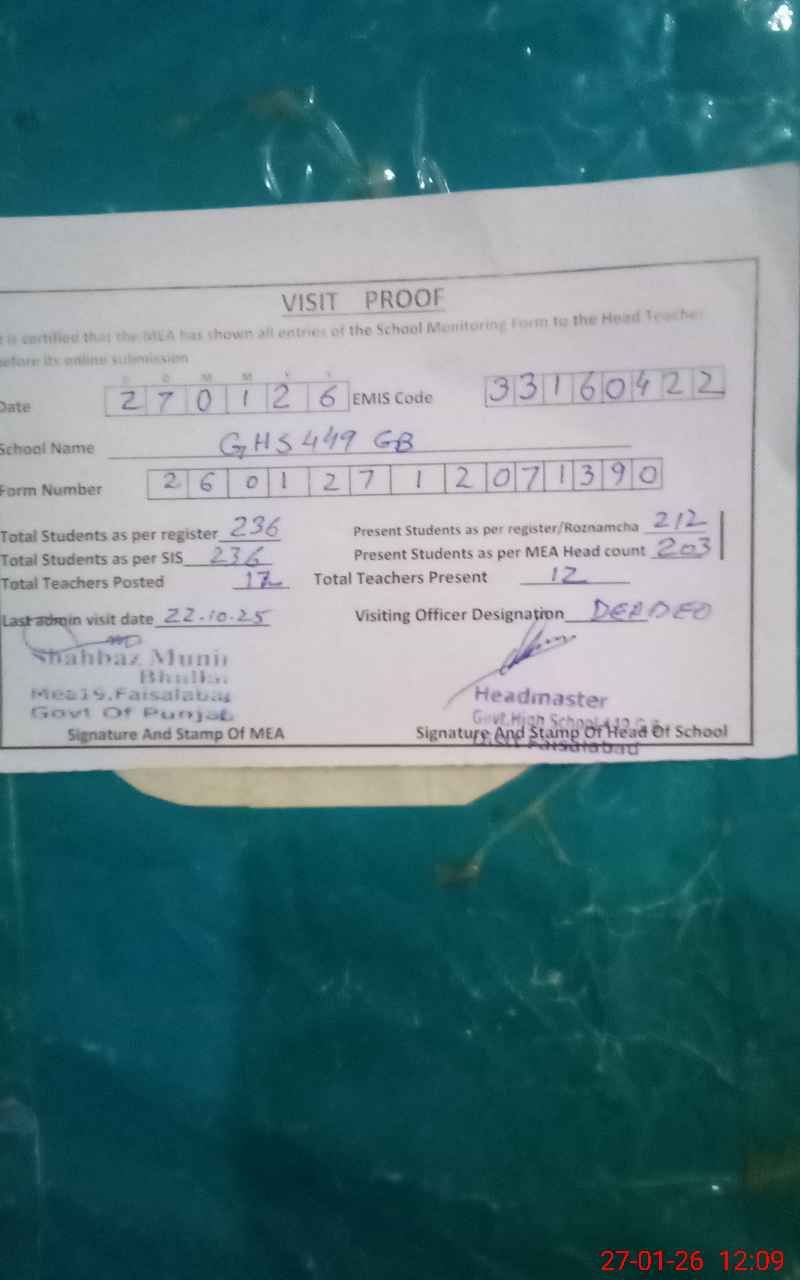 VISIT PROOF
t is certified that the MEA has shown all entries of the School Monitoring Form to the Head Teacher
before its online submission
D D M M Y Y
Date 270126 EMIS Code 33160422
School Name GHS 449 GB
Form Number 26012712071390
Total Students as per register 236 Present Students as per register/Roznamcha 212
Total Students as per SIS 236 Present Students as per MEA Head count 203
Total Teachers Posted 12 Total Teachers Present 12
Last admin visit date 22.10.25 Visiting Officer Designation
Shahbaz Munir
Mea19, Faisalabad
Govt Of Punjab
Headmaster
Govt. High School
Faisalabad
Signature And Stamp Of MEA Signature And Stamp Of Head Of School
27-01-26 12:09